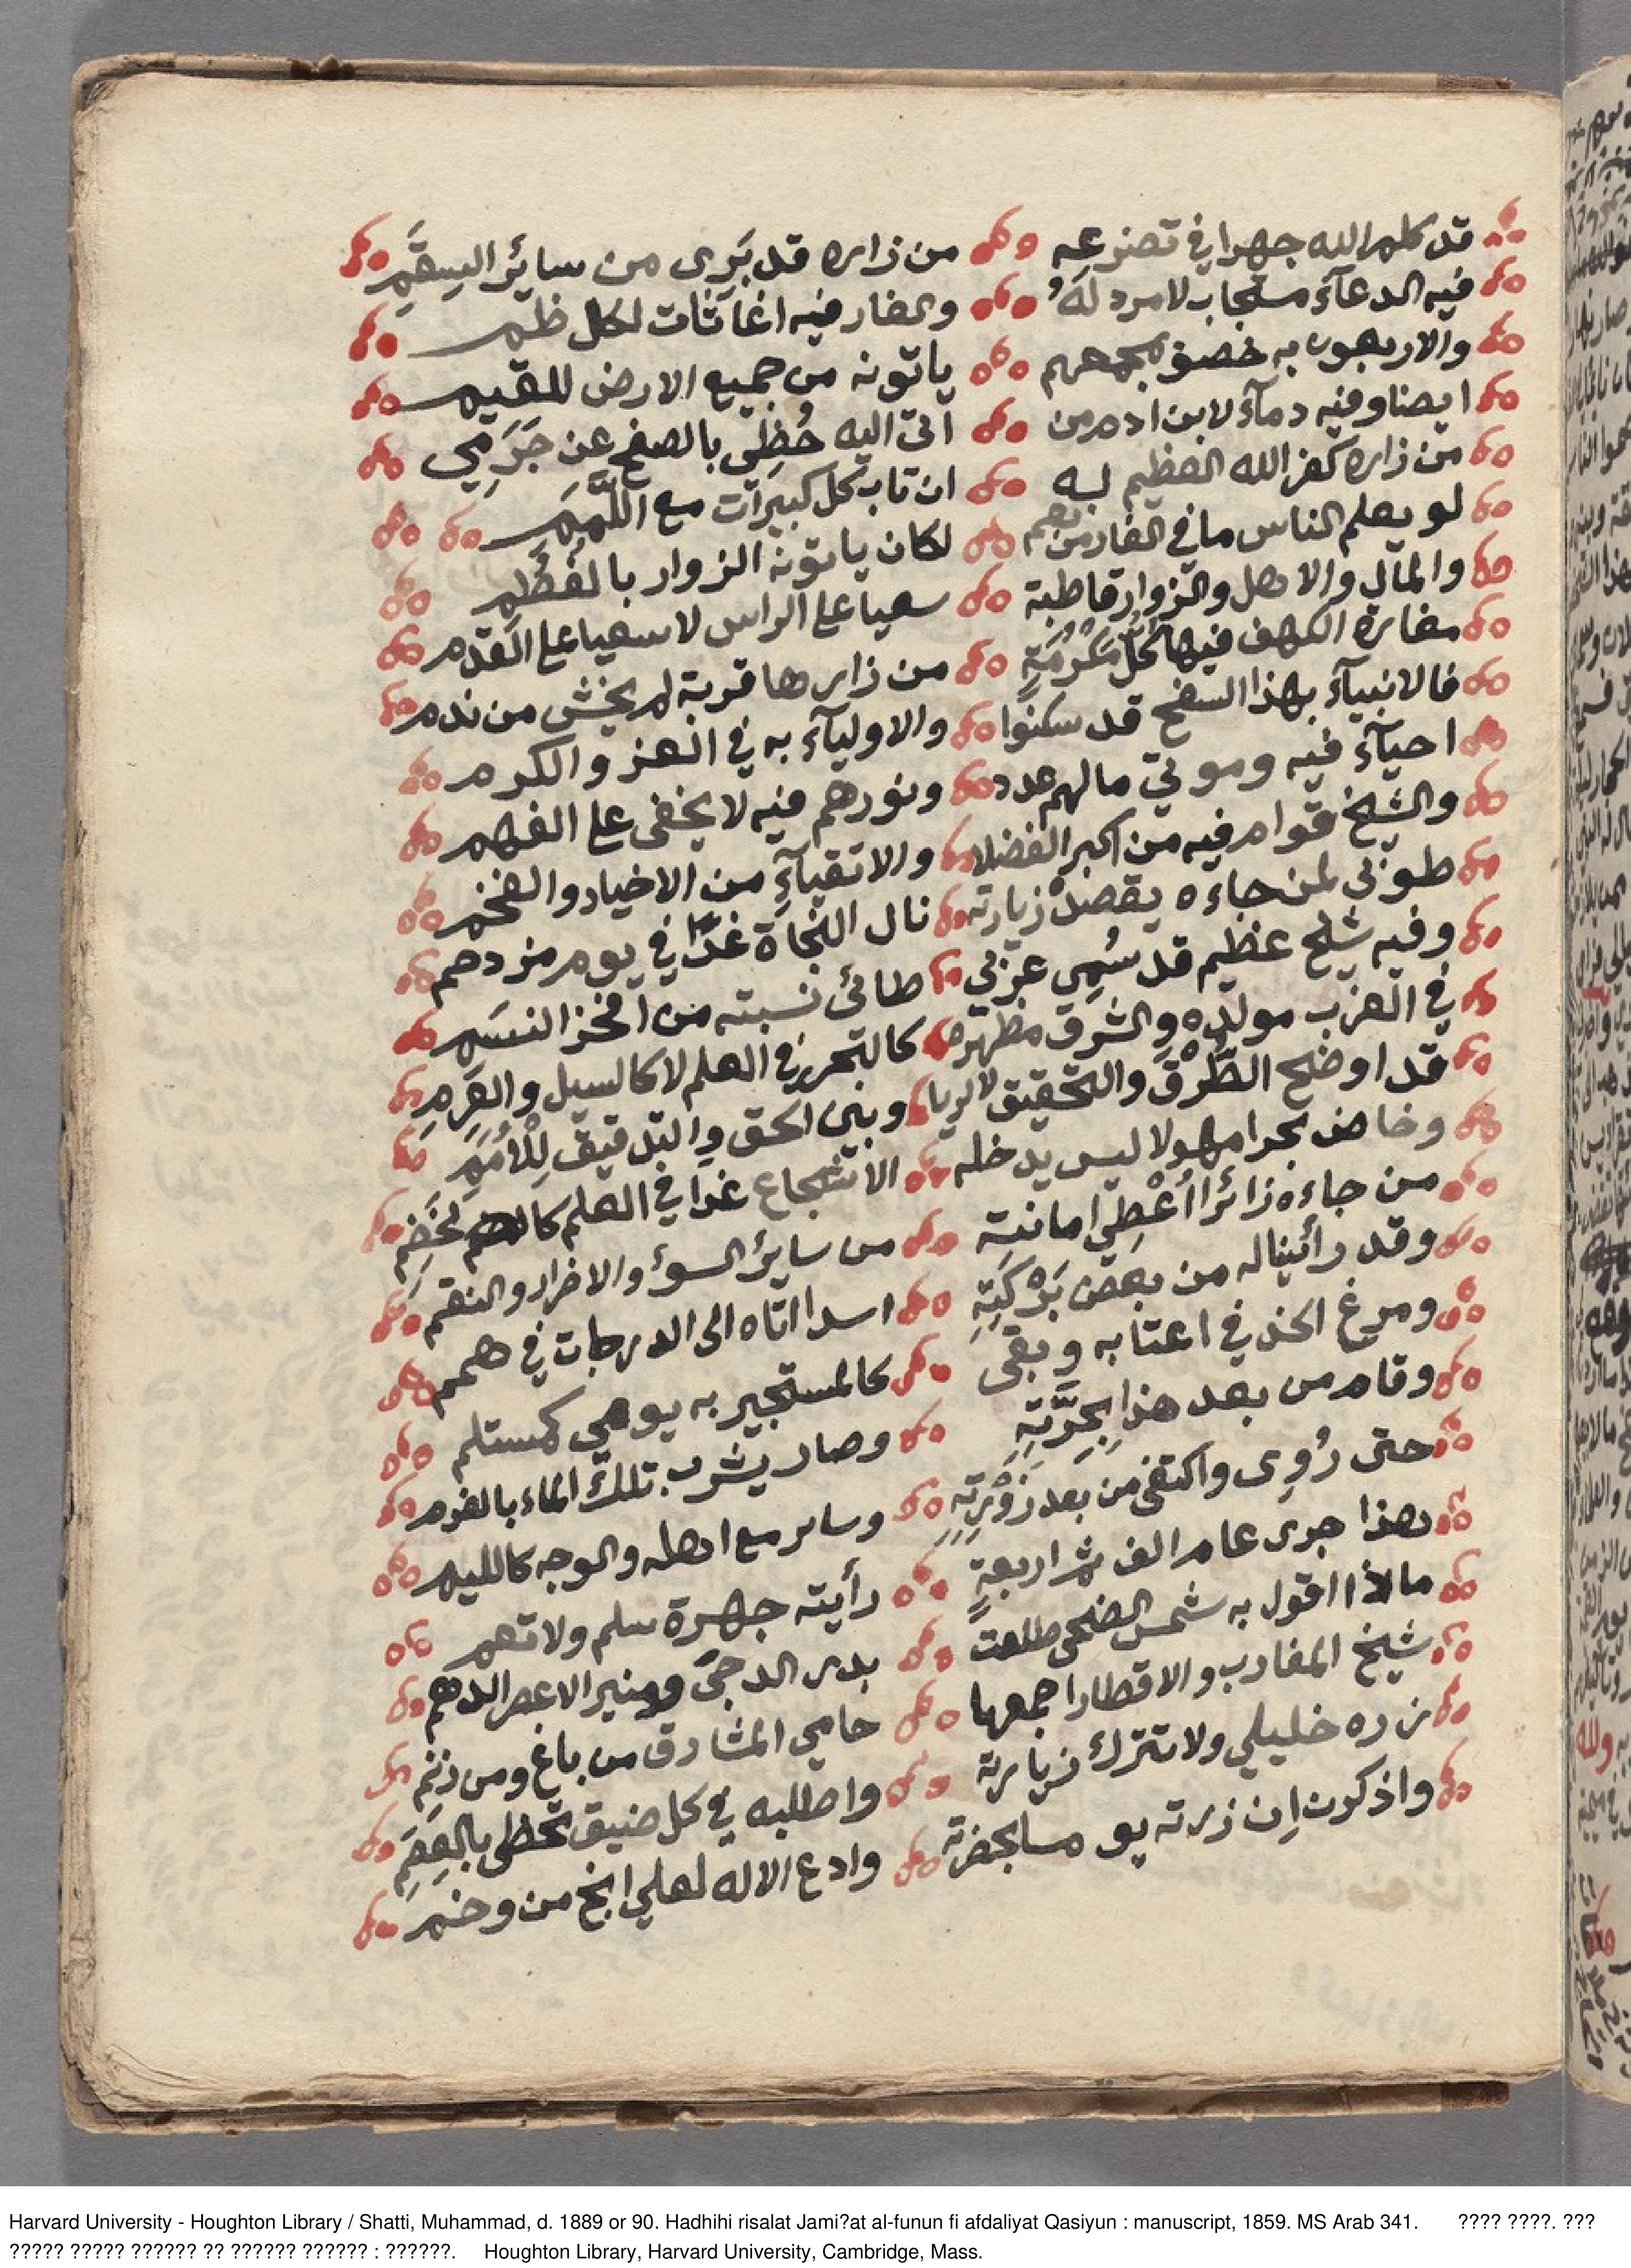 قد كلم الله جهرا في تضرعه من زاره قد بَرى من سايرَ السِقَمِ
فيه الدعآء مستجاب لا مرد لهُ والغار فيه اغاثات لكل ظم
والاربعون به خصو بجمعهم ياتونه من جميع الارض للقيم
ايضا وفيه دمآء لابن ادم من اتى اليه حُظِي بالصفح عن جَرَمِي
من زاره كفر الله العظيم له ان تاب كل كبيرات مع اللَّمَمِ
لو يعلم الناس ما في الغار من نعم لكان ياتونه الزوار بالعُظُم
والمال والاهل والزوار قاطبة سعيا على الراس لا سعيا على القدم
مغارة الكهف فيها كلُّ مَكْرُمَةٍ من زارها قربة لم يخش من ندم
فالانبيآء بهذا السفح قد سكنوا والاوليآء به في العز والكرم
احيآء فيه وموتى ما لهم عدد ونورهم فيه لا يخفى على الفهم
والشيخ قوام فيه من اكبر الفضلا والاتقيآءِ من الاخيار والفخم
طوبى لمن جاءه يقصدْ زيارته نال النجاة غدًا في يوم مزدحم
وفيه شيخ عظيم قد سُمِي عربي طائى نسبته من افخر النسَمِ
في الغرب مولده والشرق مظهره كالبحر في العلم لا كالسيل والعَرِمِ
قد اوضح الطُّرْقَ والتحقيق لا لريا وبين الحق والتدقيق لِلْأُمَمِ
وخاض بحرا مهولا ليس يدخله الا شجاع غدا في العلم كالخَضِمِ
من جاءه زائرا اُعْطِي امانته من سايرُ السوُء والاضرار والنقم
وقد رأينا له من بعض بَرْكَتِهِ اسدا اتاه الى الدرجات في همم
ومرغ الخد في اعتابه وبقى كالمستجير به يومي كمستلم
وقام من بعد هذا لِجَرَّتِهِ وصار يشرب تلك الماء بالفم
حتى رُوِى واكتفى من بعد زَوْرَتِهِ وسار مع اهله والوجه كالليم
هذا جرى عام الف ثم اربعةٍ رأيته جهرة سلم ولا تهم
ماذا اقول به شمس الضحى طلعت بدر الدجى ومنير الاعصر الدهم
شيخ المغارب والاقطار اجمعها حامي المشارق من باغ ومن زنم
زره خليلي ولا تترك زيارته واطلبه في كل ضيق تحظى بالعِصَمِ
واذكرن اِن زرته يوما بحضرته وادع الاله لعلي انج من وخم
Harvard University - Houghton Library / Shatti, Muhammad, d. 1889 or 90. Hadhihi risalat Jami?at al-funun fi afdaliyat Qasiyun : manuscript, 1859. MS Arab 341. ???? ????. ???
????? ????? ?????? ?? ?????? ?????? : ??????. Houghton Library, Harvard University, Cambridge, Mass.